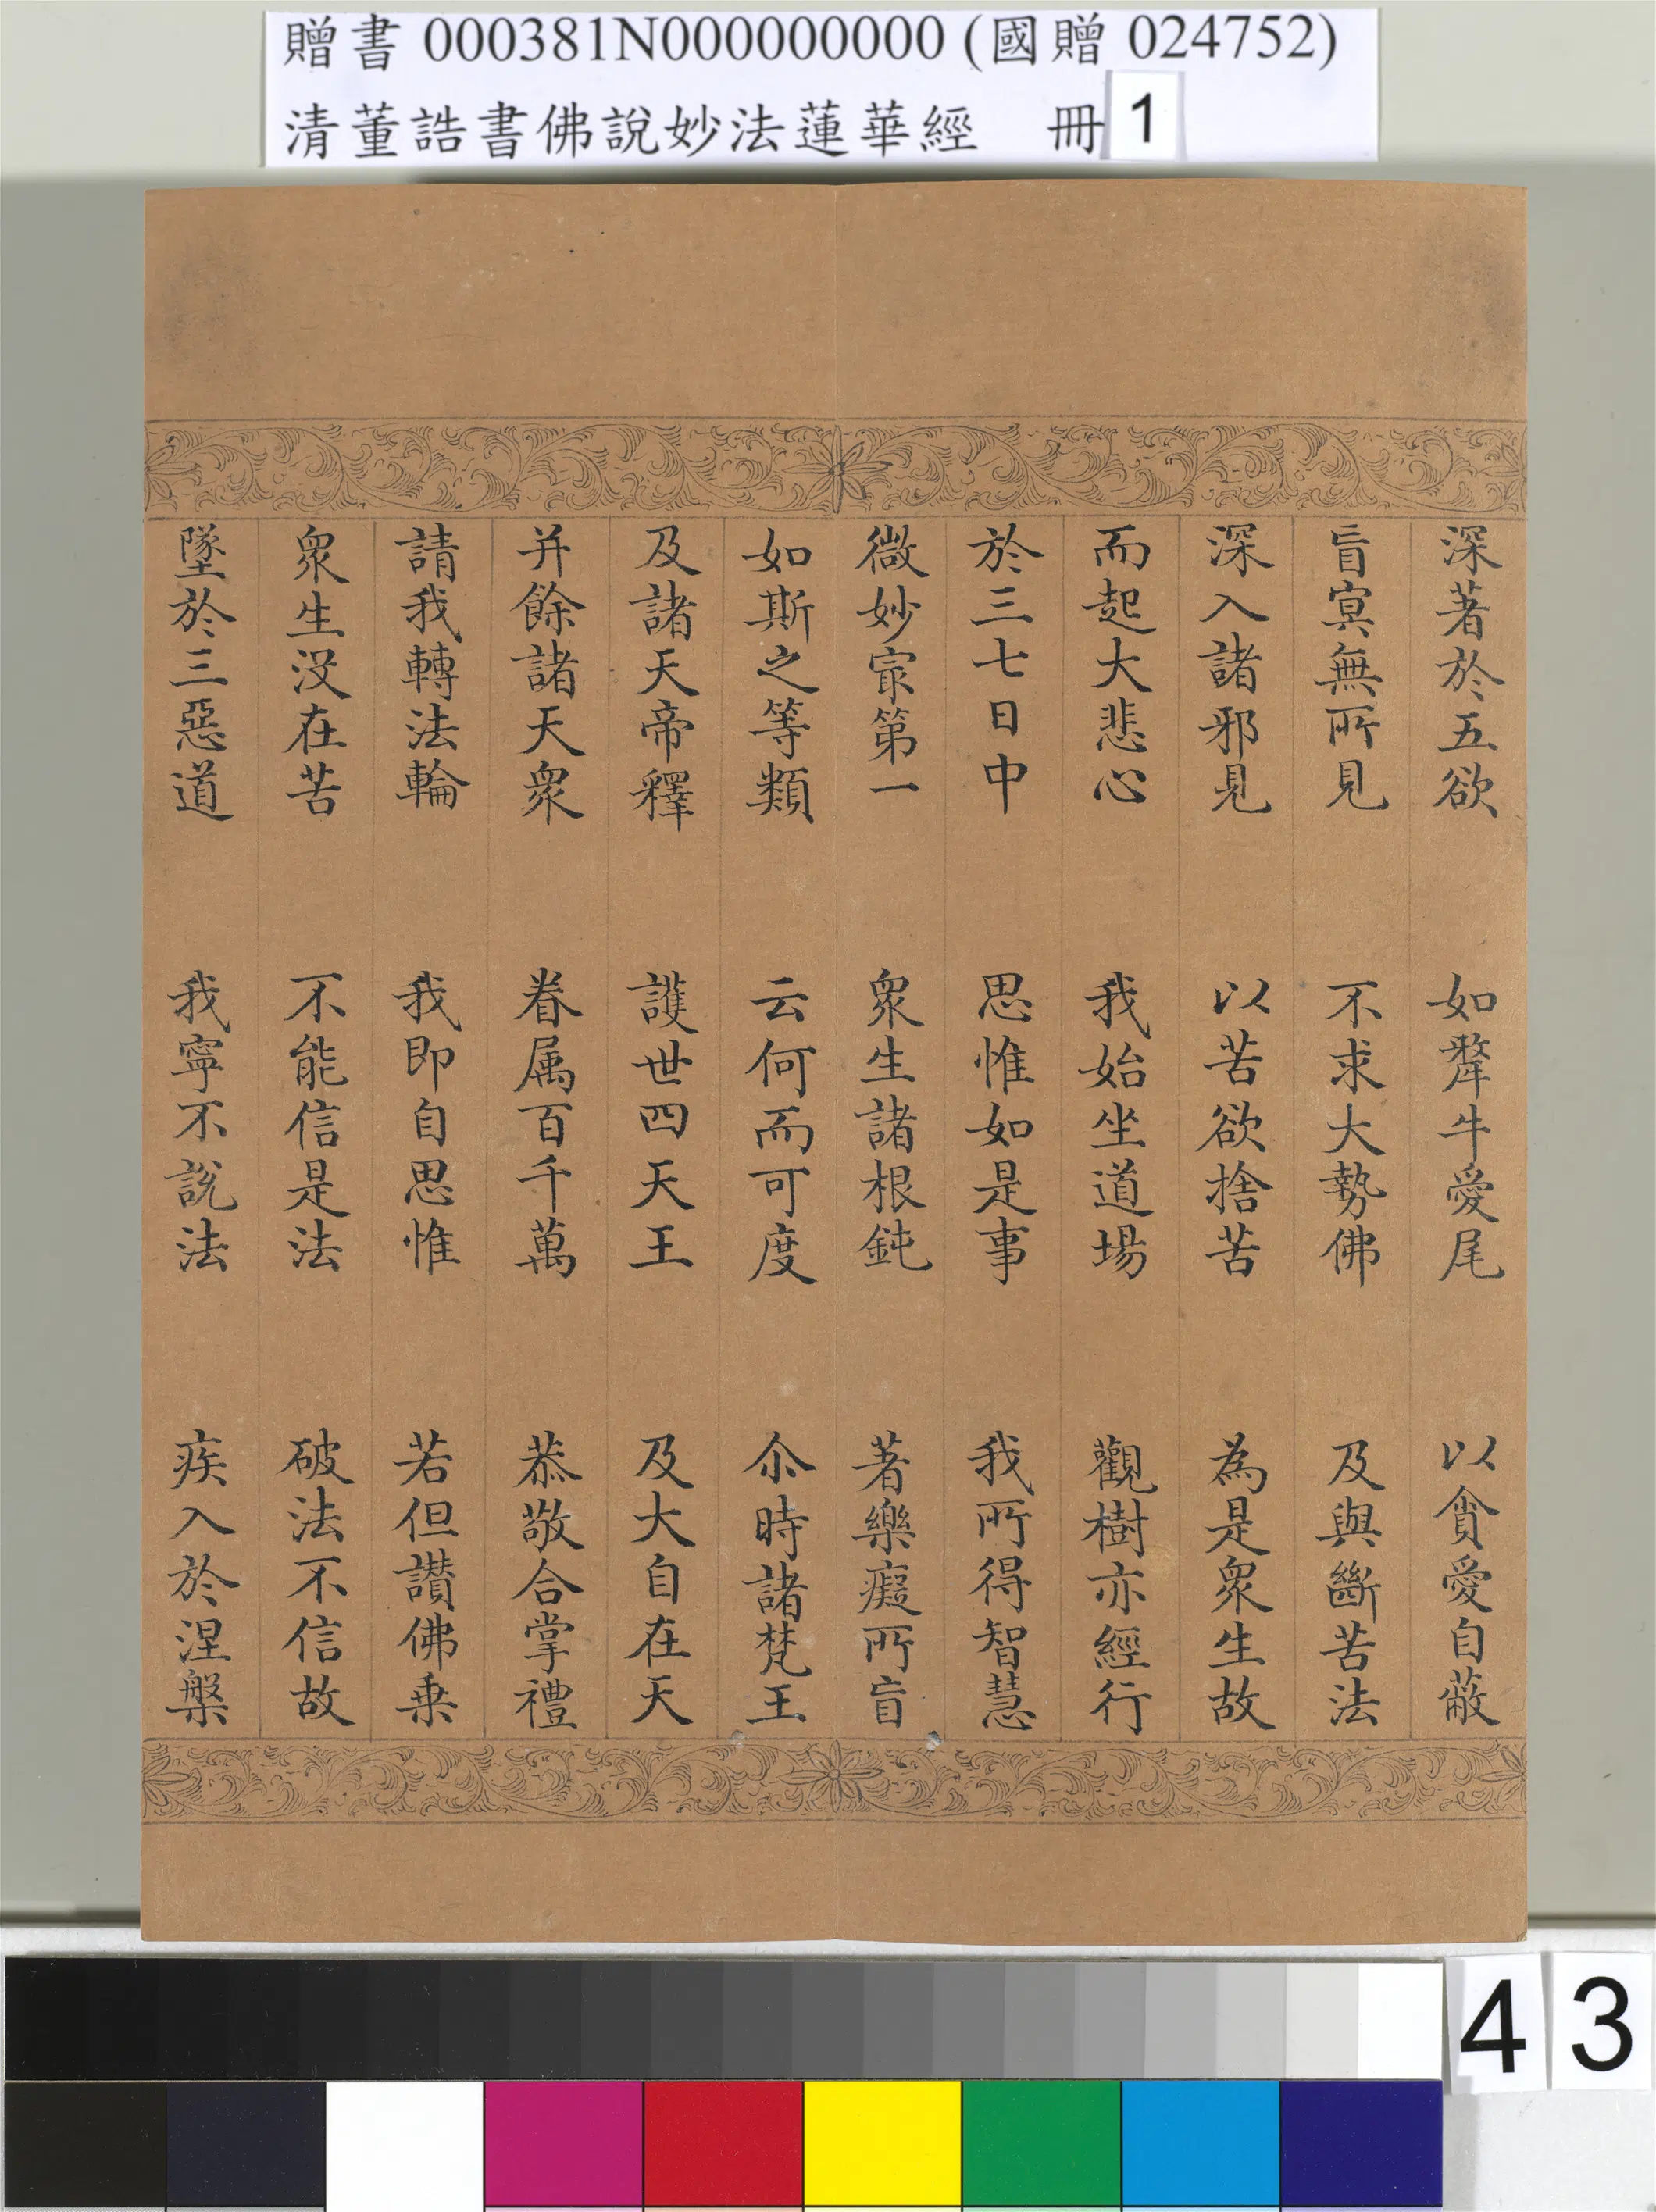 贈書 000381N000000000 (國贈 024752)
清董誥書佛說妙法蓮華經 冊 1
深著於五欲 如犛牛愛尾 以貪愛自蔽
盲冥無所見 不求大勢佛 及與斷苦法
深入諸邪見 以苦欲捨苦 為是衆生故
而起大悲心 我始坐道場 觀樹亦經行
於三七日中 思惟如是事 我所得智慧
微妙㝡第一 衆生諸根鈍 著樂癡所盲
如斯之等類 云何而可度 尒時諸梵王
及諸天帝釋 護世四天王 及大自在天
并餘諸天衆 眷属百千萬 恭敬合掌禮
請我轉法輪 我即自思惟 若但讃佛乗
衆生沒在苦 不能信是法 破法不信故
墜於三惡道 我寧不說法 疾入於涅槃
43